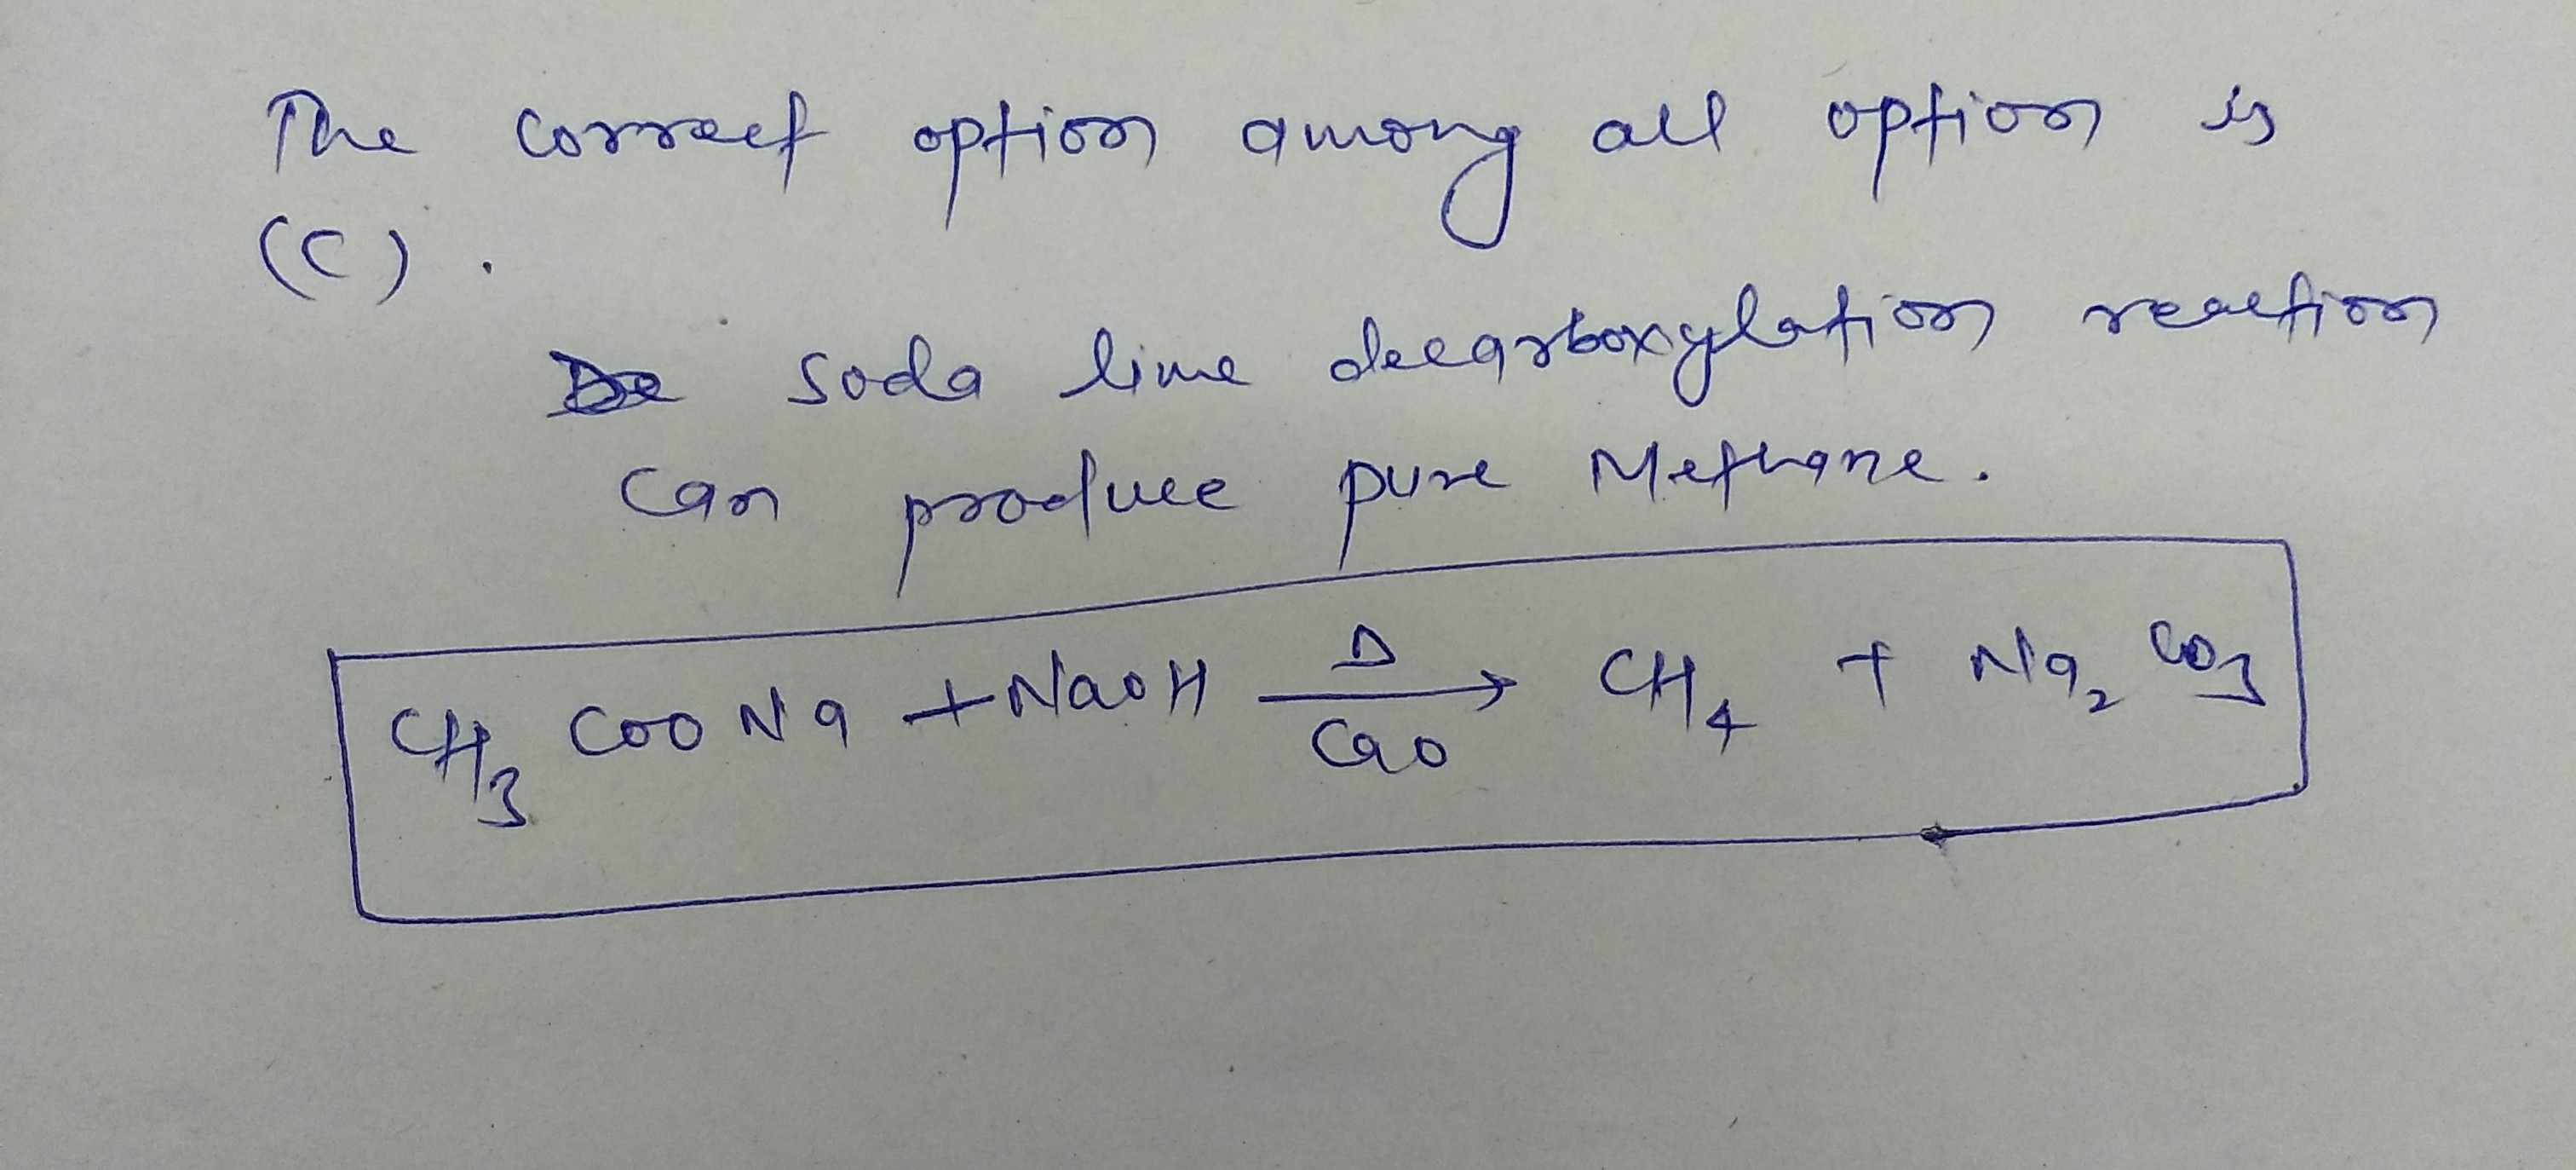 The correct option among all option is
(C).
Soda lime decarboxylation reaction
can produce pure Methane.
CH₃COONa + NaOH →[Δ/CaO] CH₄ + Na₂CO₃